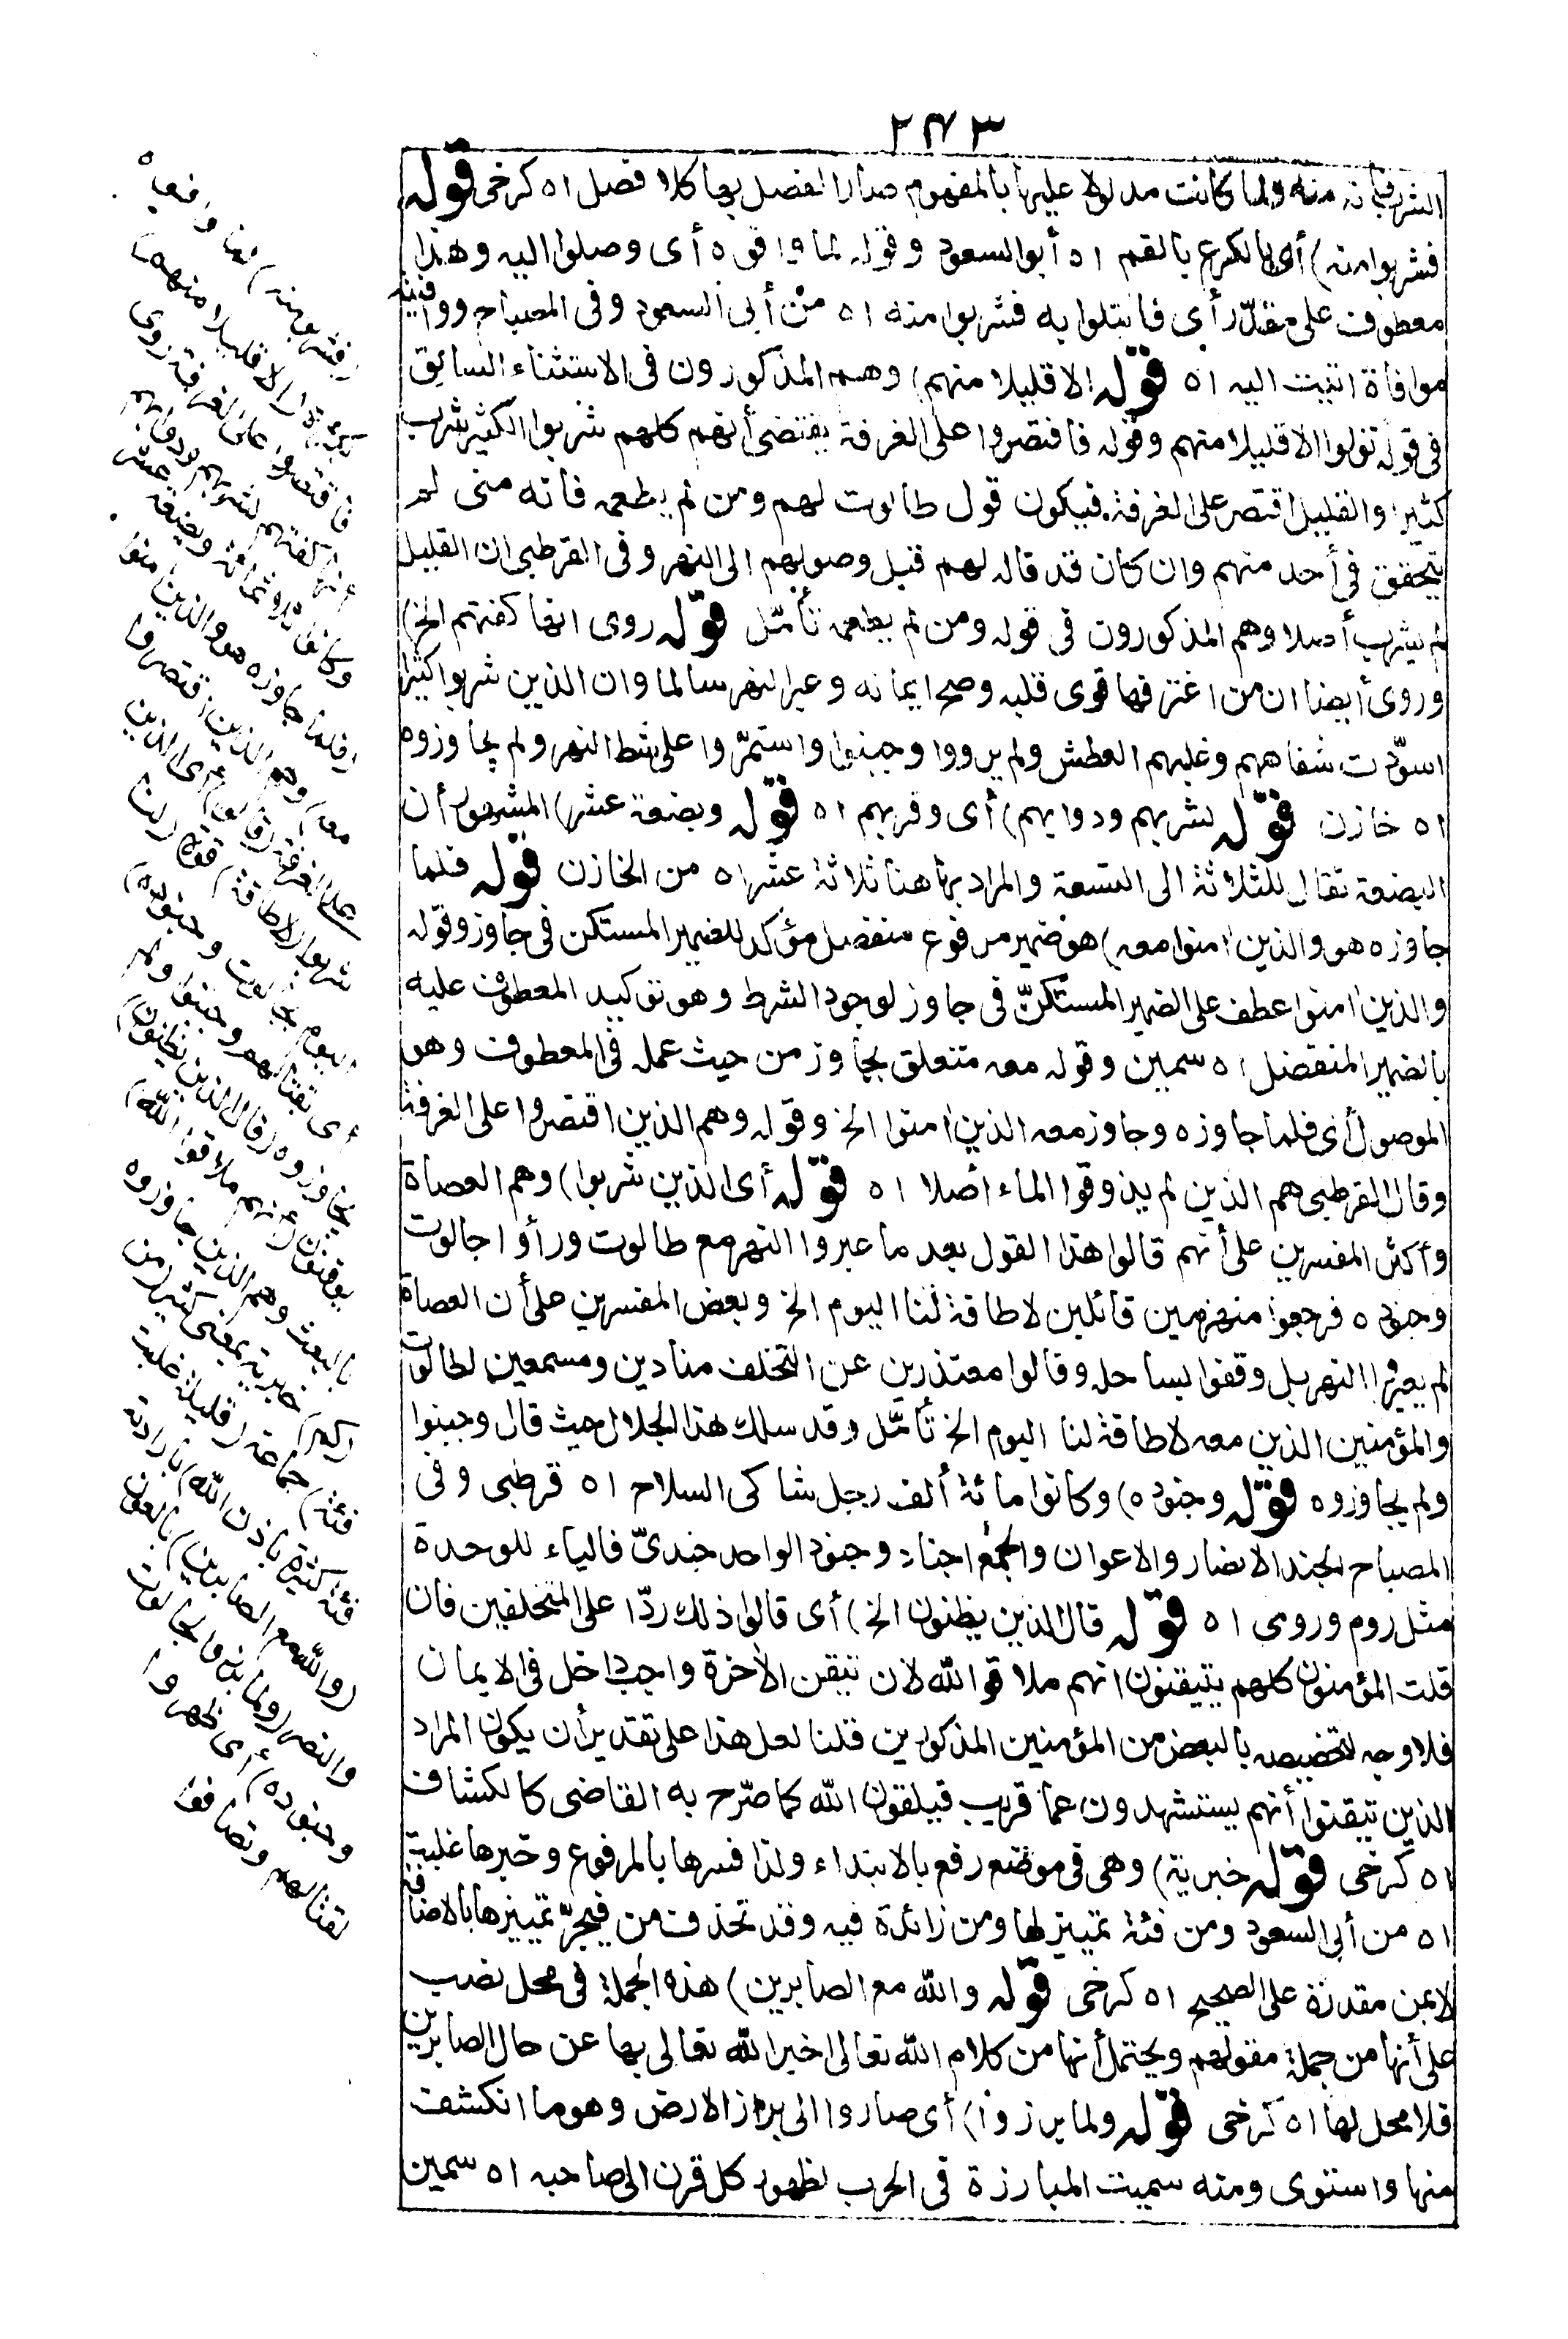 ٢٤٣
الشرب منه ولما كانت مدلولا عليها بالمفهوم صار الفصل بها كلا فصل اه كرخى قوله
فشربوا منه) أى بالكرع بالفم اه أبو السعود وقوله لما وافوه أى وصلوا اليه وهذا
معطوف على مقدّر أى فابتلوا به فشربوا منه اه من أبى السعود وفى المصباح ووافيته
موافاة اتيت اليه اه قوله الا قليلا منهم) وهم المذكورون فى الاستثناء السابق
فى قوله تولوا الا قليلا منهم وقوله فاقتصروا على الغرفة يقتضى أنهم كلهم شربوا الكثير شرب
كثيرا والقليل اقتصر على الغرفة فيكون قول طالوت لهم ومن لم يطعمه فانه منى لم
يتحقق فى أحد منهم وان كان قد قاله لهم قبل وصولهم الى النهر وفى القرطبى ان القليل
لم يشرب أصلا وهم المذكورون فى قوله ومن لم يطعمه تأمّل قوله روى انها كفتهم الخ)
وروى أيضا ان من اغترفها قوى قلبه وصح ايمانه وعبر النهر سالما وان الذين شربوا كثيرا
اسودّت شفاههم وغلبهم العطش ولم يرووا وجبنوا واستمرّوا على شط النهر ولم يجاوزوه
اه خازن قوله لشربهم ودوابهم) أى وقربهم اه قوله وبضعة عشر) المشهور أن
البضعة تقال للثلاثة الى التسعة والمراد بها هنا ثلاثة عشر اه من الخازن قوله فلما
جاوزه هو والذين امنوا معه) هو ضمير مرفوع منفصل مؤكد للضمير المستكن فى جاوز وقوله
والذين امنوا عطف على الضمير المستكنّ فى جاوز لوجود الشرط وهو توكيد المعطوف عليه
بالضمير المنفصل اه سمين وقوله معه متعلق بجاوز من حيث عمله فى المعطوف وهو
الموصول أى فلما جاوزه وجاوز معه الذين امنوا الخ وقوله وهم الذين اقتصروا على الغرفة
وقال القرطبى هم الذين لم يذوقوا الماء أصلا اه قوله أى الذين شربوا) وهم العصاة
وأكثر المفسرين على أنهم قالوا هذا القول بعد ما عبروا النهر مع طالوت ورأوا جالوت
وجنوده فرجعوا منهزمين قائلين لا طاقة لنا اليوم الخ وبعض المفسرين على أن العصاة
لم يعبروا النهر بل وقفوا بساحله وقالوا معتذرين عن التخلف منادين ومسمعين لطالوت
والمؤمنين الذين معه لا طاقة لنا اليوم الخ تأمّل وقد سلك هذا الجلال حيث قال وجبنوا
ولم يجاوزوه قوله وجنوده) وكانوا مائة ألف رجل شاكى السلاح اه قرطبى وفى
المصباح الجند الانصار والاعوان والجمع اجناد وجنود الواحد جندىّ فالياء للوحدة
مثل روم ورومى اه قوله قال الذين يظنون الخ) أى قالوا ذلك ردّا على المتخلفين فان
قلت المؤمنون كلهم يتيقنون انهم ملاقو الله لان تيقن الاخرة واجب داخل فى الايمان
فلا وجه لتخصيصه بالبعض من المؤمنين المذكورين قلنا لعل هذا على تقدير أن يكون المراد
الذين تيقنوا أنهم يستشهدون عما قريب فيلقون الله كما صرّح به القاضى كالكشاف
اه كرخى قوله خبرية) وهى فى موضع رفع بالابتداء ولذا فسرها بالمرفوع وخبرها غلبت
اه من أبى السعود ومن فئة تمييز لها ومن زائدة فيه وقد تحذف من فيجرّ تمييزها بالاضافة
لا بمن مقدرة على الصحيح اه كرخى قوله والله مع الصابرين) هذه الجملة فى محل نصب
على أنها من جملة مقولهم ويحتمل أنها من كلام الله تعالى اخبر الله تعالى بها عن حال الصابرين
فلا محل لها اه كرخى قوله ولما برزوا) أى صاروا الى براز الارض وهو ما انكشف
منها واستوى ومنه سميت المبارزة فى الحرب لظهور كل قرن الى صاحبه اه سمين
(فشربوا منه) لما وافوه
بكثرة (الا قليلا منهم)
فاقتصروا على الغرفة روى
أنها كفتهم لشربهم ودوابهم
وكانوا ثلاثمائة وبضعة عشر
(فلما جاوزه هو والذين امنوا
معه) وهم الذين اقتصروا
على الغرفة (قالوا) أى الذين
شربوا (لا طاقة) قوّة (لنا
اليوم بجالوت وجنوده)
أى بقتالهم وجبنوا ولم
يجاوزوه (قال الذين يظنون)
يوقنون (أنهم ملاقوا الله)
بالبعث وهم الذين جاوزوه
(كم) خبرية بمعنى كثير (من
فئة) جماعة (قليلة غلبت
فئة كثيرة باذن الله) بارادته
(والله مع الصابرين) بالعون
والنصر (ولما برزوا لجالوت
وجنوده) أى ظهروا
لقتالهم وتصافوا